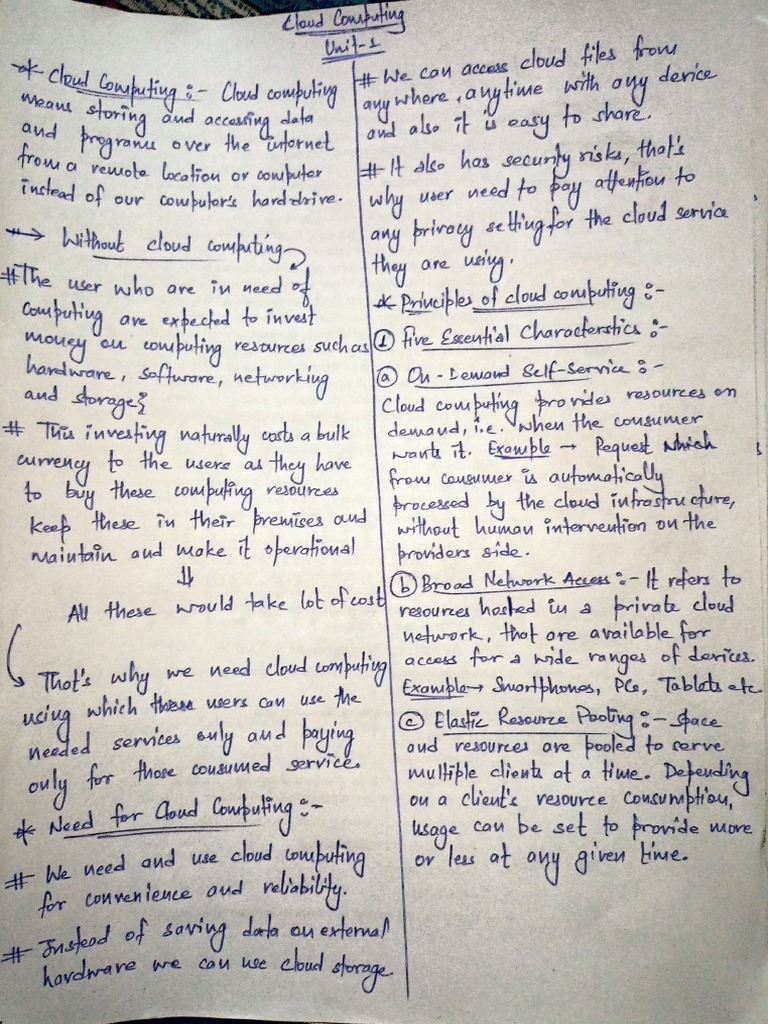 Cloud Computing
Unit-1
* Cloud Computing :- Cloud computing
means storing and accessing data
and programs over the internet
from a remote location or computer
instead of our computer's hard drive.
→ Without cloud computing
# The user who are in need of
computing are expected to invest
money on computing resources such as
hardware, software, networking
and storage}
# This investing naturally costs a bulk
currency to the users as they have
to buy these computing resources
keep these in their premises and
maintain and make it operational
⇓
All these would take lot of cost
That's why we need cloud computing
using which these users can use the
needed services only and paying
only for those consumed service.
* Need for Cloud Computing :-
# We need and use cloud computing
for convenience and reliability.
# Instead of saving data on external
hardware we can use cloud storage.
# We can access cloud files from
anywhere, anytime with any device
and also it is easy to share.
# It also has security risks, that's
why user need to pay attention to
any privacy setting for the cloud service
they are using.
* Principles of cloud computing :-
① Five Essential Characterstics :-
ⓐ On-Demand Self-Service :-
Cloud computing provides resources on
demand, i.e. when the consumer
wants it. Example → Request which
from consumer is automatically
processed by the cloud infrastructure,
without human intervention on the
providers side.
ⓑ Broad Network Access :- It refers to
resources hosted in a private cloud
network, that are available for
access for a wide ranges of devices.
Example → Smartphones, PCs, Tablets etc.
ⓒ Elastic Resource Pooting :- Space
and resources are pooled to serve
multiple clients at a time. Depending
on a client's resource consumption,
usage can be set to provide more
or less at any given time.